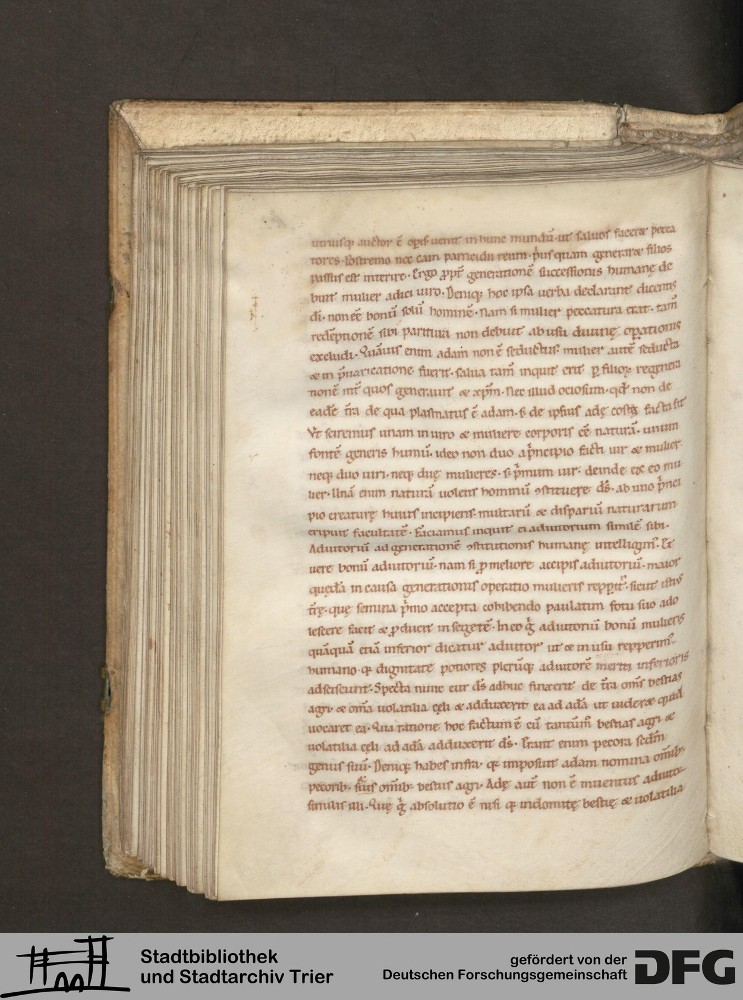 utriusq; auctor ē opis uenit in hunc mundū ut saluos faceret pecca
tores. Postremo nec cain parricidii reum. p̄us quam generaret filios
passus est interire. Ergo ꝓpt̄ generationē successionis humanę de
buit mulier adici uiro. Deniq; hoc ipsa uerba declarant dicentis
di. non eē bonū solū hominē. Nam si mulier peccatura erat. tam̄
redēptionē sibi paritura non debuit ab usu diuinę oꝑationis
excludi. Quāuis enim adam non ē seductus. mulier autē seducta
& in p̄uaricatione fuerit. salua tam̄ inquit erit ꝑ filioꝝ regnera
tionē int̄ quos generauit & xp̄m. Nec illud ociosum. qd̄ non de
eadē t̄ra de qua plasmatus ē adam. s; de ipsius adę costa facta sit
Vt sciremus unam in uiro & muliere corporis eē naturā. unum
fontē generis humū. ideo non duo a p̄ncipio facti uir & mulier.
neq; duo uiri. neq; duę mulieres. s; p̄mum uir. deinde ex eo mu
lier. Unā enim naturā uolens hominū ꝯstituere d̄s. ab uno p̄nci
pio creaturę huius incipiens. multarū & disparium naturarum
eripuit facultatē. Faciamus inquit ei adiutorium similē sibi.
Adiutoriū ad generationē ꝯstitutionis humanę intelligim̄. Et
uere bonū adiutoriū. nam si ꝓ meliore accipis adiutoriū. maior
quędā in causa generationis operatio mulieris repꝑit̄. sicut istius
t̄rę. que semina p̄mo accepta cohibendo paulatim fotu suo ado
lescere facit & ꝓducit in segetē. In eo ḡ adiutoriū bonū mulieris
quāquā etiā inferior dicatur adiutor ut & in usu repperim̄
humano. q; dignitate potiores plerūq; adiutorē meriti inferioris
adsciscunt. Specta nunc cur d̄s adhuc finxerit de t̄ra om̄s bestias
agri. & om̄a uolatilia cęli & adduxerit ea ad adā ut uideret quid
uocaret ea. Qua ratione hoc factum ē cū tantum bestias agri &
uolatilia cęli ad adā adduxerit d̄s. Erant enim pecora scdm̄
genus suū. Deniq; habes infra. q; imposuit adam nomina om̄ib;
pecorib; & om̄ib; bestiis agri. Adę aut̄ non ē inuentus adiutor
similis illi. Quę ḡ absolutio ē nisi q; indomitę bestię & uolatilia
Stadtbibliothek
und Stadtarchiv Trier
gefördert von der
Deutschen Forschungsgemeinschaft
DFG